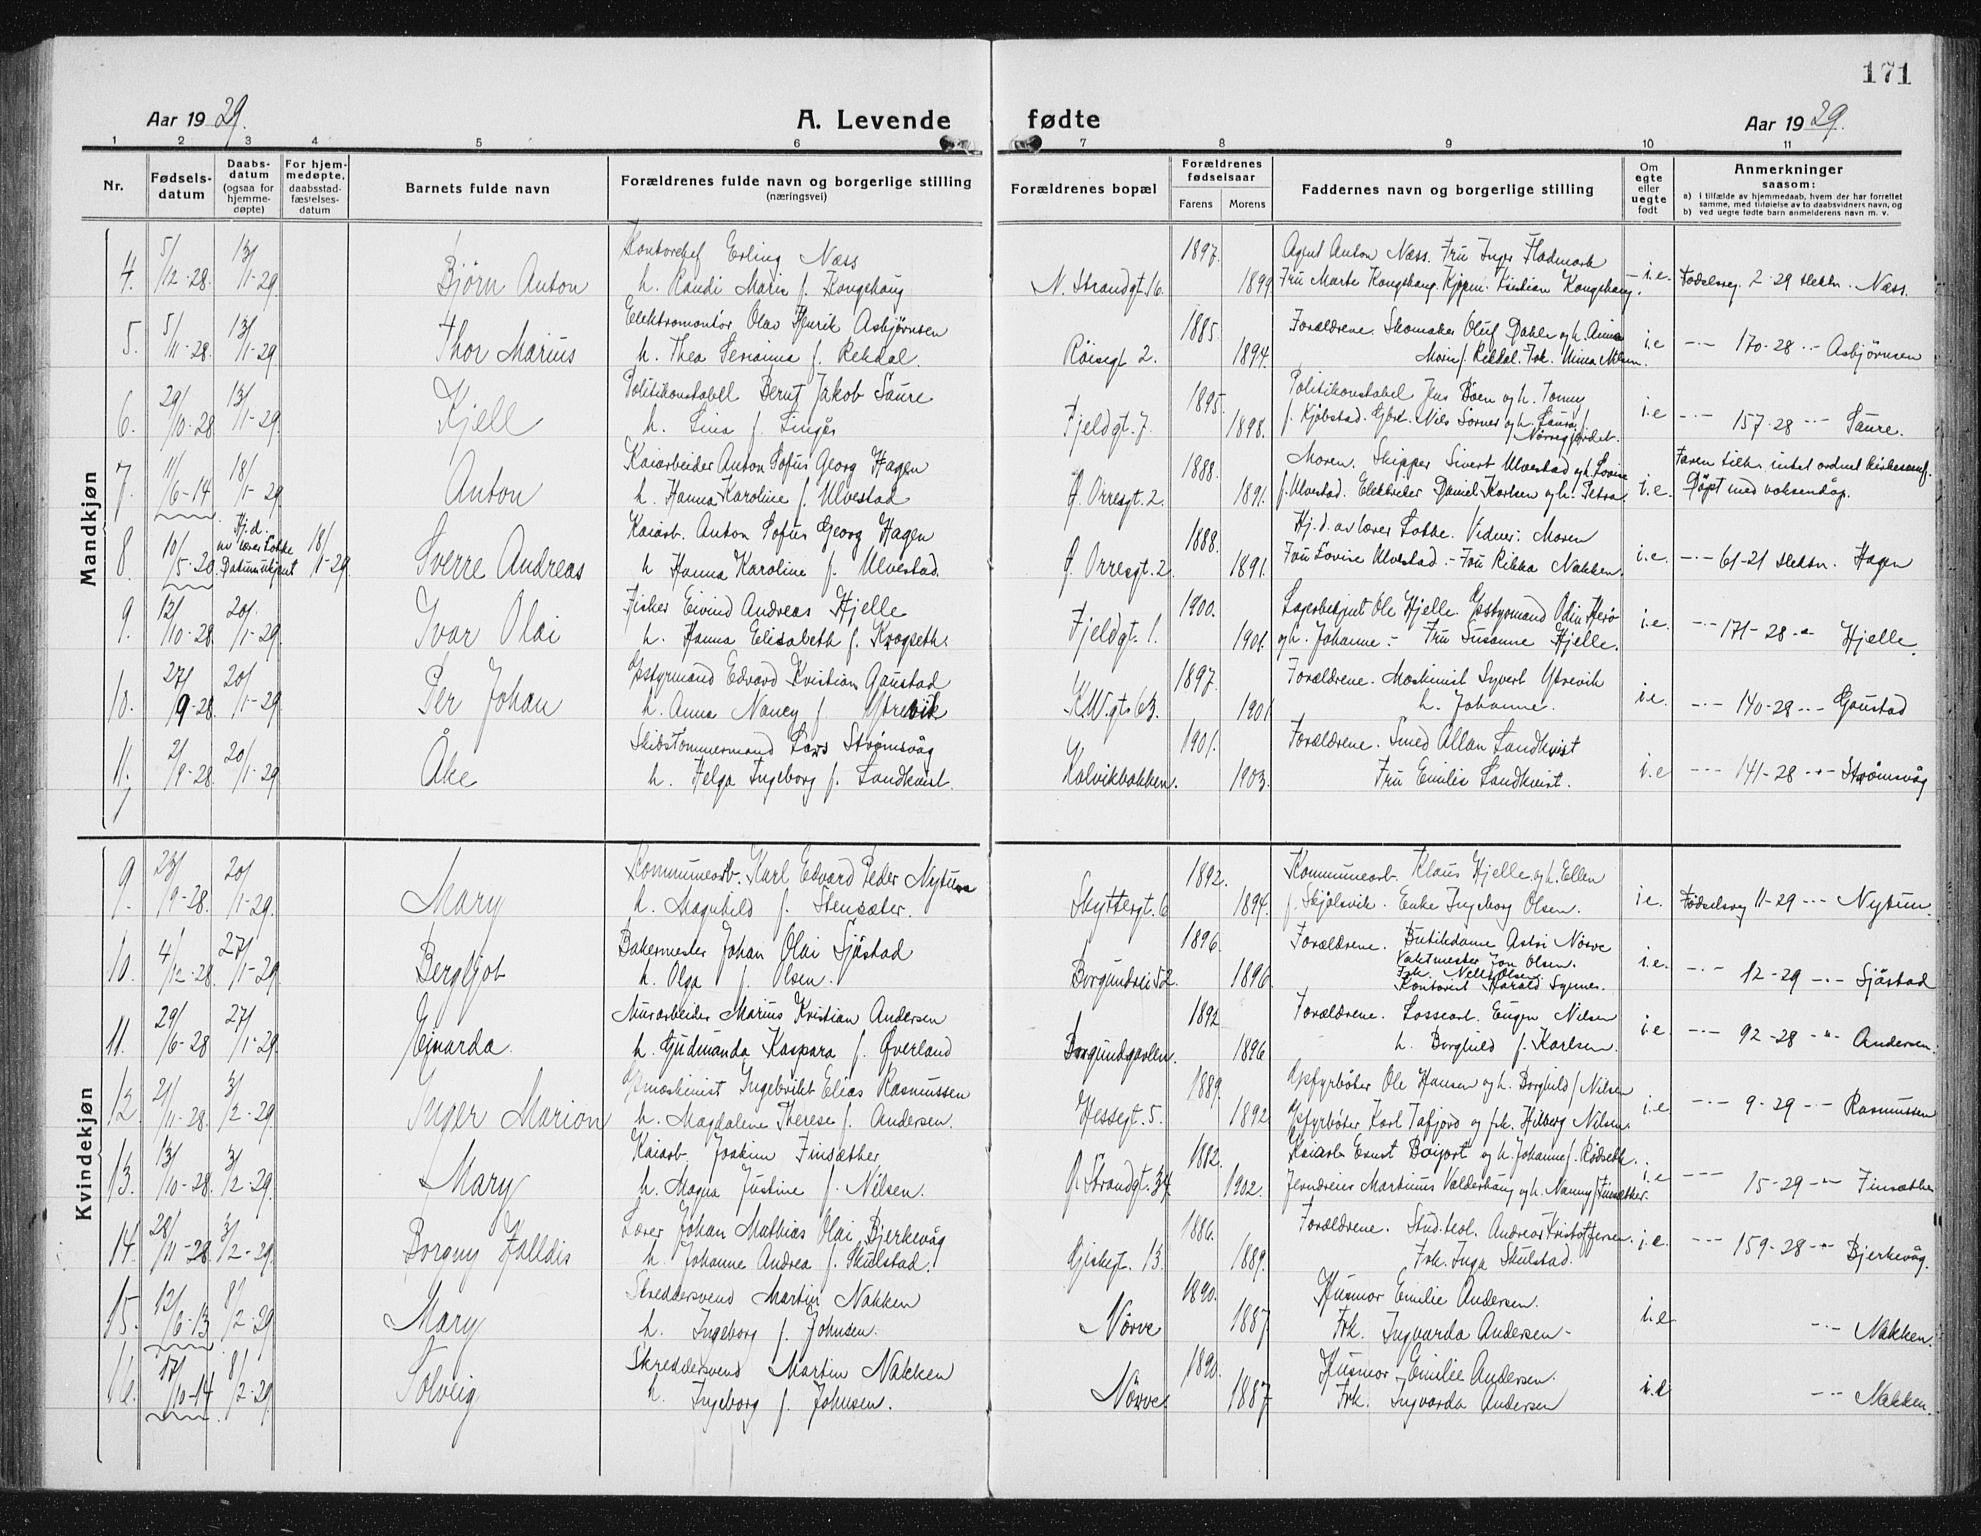 171
Aar 1929.
A. Levende
fødte
Aar 1929.
1 2 3 4 5 6 7 8 9 10 11
Nr.
Fødsels-
datum
Daabs-
datum
(ogsaa for
hjemme-
døpte)
For hjem-
medøpte,
daabsstad-
fæstelses-
datum
Barnets fulde navn
Forældrenes fulde navn og borgerlige stilling
(næringsvei)
Forældrenes bopæl
Forældrenes
fødselsaar
Farens Morens
Faddernes navn og borgerlige stilling
Om
egte
eller
uegte
født
Anmerkninger
saasom:
a) i tilfælde av hjemmedaab, hvem der har forrettet
samme, med tilføielse av to daabsvidners navn, og
b) ved uegte fødte barn anmelderens navn m. v.
Mandkjøn
5/ 13/ Kontorchef Erling Næss 1897. Agent Anton Næss. Fru Inger Flademark
4. 12-28. 1-29 Bjørn Anton h. Randi Marie f. Kongshaug N. Strandgt. 16. 1899 Fru Marte Kongshaug. Kjøpm. Kristian Kongshaug. i.e. Fødselsreg. 2-29 Næss.
5/ 13/ Elektromontør Olav Henrik Asbjørnsen 1885. Forældrene. Skomaker Oluf Dahle og h. Anna
5. 11-28. 1-29 Thor Marius h. Thea Serianna f. Rekdal. Röisegt 2. 1894. Marie f. Rekdal. Frk. Mina Nilsen. i.e -"- 170-28 -"- Asbjørnsen
29/ 13/ Politikonstabel Bernt Jakob Saure 1895. Politikonstabel Jens Böen og h. Tommy
6. 10-28 1-29. Kjell h. Lina f. Lingås Fjeldgt. 7. 1898. f. Kjøbstad. Nils Sørnes og h. Laura f. i.e -"- 157-28 -"- Saure.
11/ 18/ Kaiarbeider Anton Sofus Georg Hagen 1888. Moren. Skipper Sivert Ulvestad og h. Lovise Faren tilh. intet ordnet kirkesamf.
7. 6-14 1-29. Anton h. Hanna Karoline f. Ulvestad Ø. Orresgt. 2. 1891. f. Ulvestad. Daniel Karlsen og h. Petra. i.e. Døpt med voksendåp.
Hj.d.
av lærer Lokke
Datum ukjent
10/ 18/ Kaiarb. Anton Sofus Georg Hagen 1888. Hj. d. av lærer Lokke. Vidner: Moren
8. 5-20 1-29. Sverre Andreas h Hanna Karoline f. Ulvestad. Ø. Orresgt. 2 1891. Fru Lovise Ulvestad. - Fru Rikka Nakken. i.e. -"- 61-21 Hagen
12/ 20/ Fisker Eivind Andreas Hjelle 1900. Lagerbetjent Ole Hjelle. Odin Herö
9. 10-28. 1-29. Ivar Olai h. Hanna Elisabeth f. Krogseth. Fjeldgt. 1. 1901. og h. Johanne - Fru Susanne Hjelle. i.e. -"- 171-28 -"- Hjelle.
27/ 20/ Edvard Kristian Gaustad 1897. Forældrene. Maskinist Syvert Ytrevik
10. 9-28. 1-29. Per Johan h. Anna Nancy f. Ytrevik K.W.gt. 63. 1901 h. Johanne. i.e. -"- 140-28 -"- Gaustad
2/ 20/ Skibstømmermand Lars Strømsvåg 1901. Forældrene. Smed Allan Landkvist
11. 9-28. 1-29. Åke h. Helga Ingeborg f. Landkvist. Kalvikbakken. 1903. Fru Emilie Landkvist. i.e -"- 141-28 -"- Strømsvåg
Kvindekjøn
23/ 20/ Kommunearb. Karl Edvard Peder Nytun 1892. Kommunearb. Klaus Hjelle og h. Ellen
9. 9-28. 1-29. Mary h. Magnhild f. Stensæter. Skyttergt. 6 1894. f. Skjølsvik. Enke Ingeborg Olsen. i.e. Fødselsreg 11-29 -"- Nytun.
4/ 27/ Bakermester Johan Olai Sjåstad 1896. Forældrene. Butikdame Astri Nörve
Vaktmester Jon Olsen.
10. 12-28. 1-29. Bergljot h. Olga f. Olsen. Borgundvei 52. 1896. Frk. Nelly Olsen. i.e. -"- 12-29 -"- Sjåstad
Kontorist Harald Synnes.
29/ 27/ Murarbeider Marius Kristian Andersen 1892 Forældrene. Lossearb. Eugen Nilsen
11. 6-28 1-29. Ejvarda. h. Gudmanda Kaspara f. Øverland Borgundgavlen. 1896 h. Borghild f. Karlsen. i.e. -"- 92-28 -"- Andersen.
2/ 3/ Ingebrikt Elias Rasmussen 1889. Ole Hansen og h. Borghild f. Nilsen
12 11-28. 2-29. Inger Marion h. Magdalene Therese f. Andersen. Hessegt. 5. 1892 Karl Tafjord og frk. Hilborg Nilsen. i.e -"- 9-29 -"- Rasmussen
13/ 3/ Kaiarb. Joakim Finsæther 1882. Kaiarb. Ernst og h. Johanne f. Rødseth.
13. 10-28. 2-29. Mary h. Magna Justine f. Nilsen. Ø. Strandgt. 34. 1902. Martinus Valderhaug og h. Nanny f. Finsæther. i.e -"- 15-29 -"- Finsæther
28/ 3/ Lærer Johan Mathias Olai Bjerkevåg 1886. Forældrene. Stud. teol. Andreas Kristoffersen.
14. 11-28. 2-29. Borgny Halldis h. Johanne Andrea f. Skulstad. Giskegt. 13. 1889. Frk. Inga Skulstad. i.e. -"- 159-28 -"- Bjerkevåg.
12/ 8/ Skreddersvend Martin Nakken 1890. Husmor Emilie Andersen.
15. 6-13 2-29 Mary h. Ingeborg f. Johnsen. Nörve 1887. Frk. Ingvarda Andersen - i.e -"- Nakken.
17/ 8/ Skreddersvend Martin Nakken 1890. Husmor Emilie Andersen.
16. 10-14 2-29. Solveig h. Ingeborg f. Johnsen. Nörve 1887 Frk. Ingvarda Andersen i.e -"- Nakken.